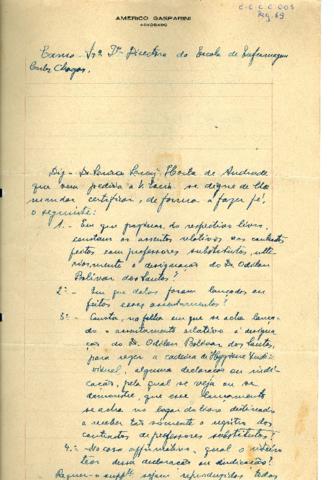 C.C.C.C 003
Pg. 69
AMERICO GASPARINI
ADVOGADO
Exma. Sra. Dra. Directora da Escola de Enfermagem
Carlos Chagas.
Diz de Andrade
que vem pedir a V. Excia. se digne de
mandar certificar, de forma a fazer fé,
o seguinte:
1.- Em que paginas, do respectivo livro,
constam os assentos relativos aos contractos
feitos com professores substitutos, ulte-
riormente á designação do Dr. Odilon
Bolivar dos Santos?
2:- Em que datas foram lançados ou
feitos esses assentamentos?
3:- Consta, na folha em que se acha lança-
do o assentamento relativo á designa-
ção do Dr. Odilon Bolivar dos Santos,
para reger a cadeira de Hygiene Indi-
vidual, alguma declaração ou indi-
cação, pela qual se veja ou se
demonstre, que esse lançamento
se acha no logar do livro destinado
a receber tão sómente o registro dos
contractos de professores substitutos?
4:- No caso affirmativo, qual o inteiro
teor dessa declaração ou indicação?
Requer o suppte. sejam reproduzidos todos